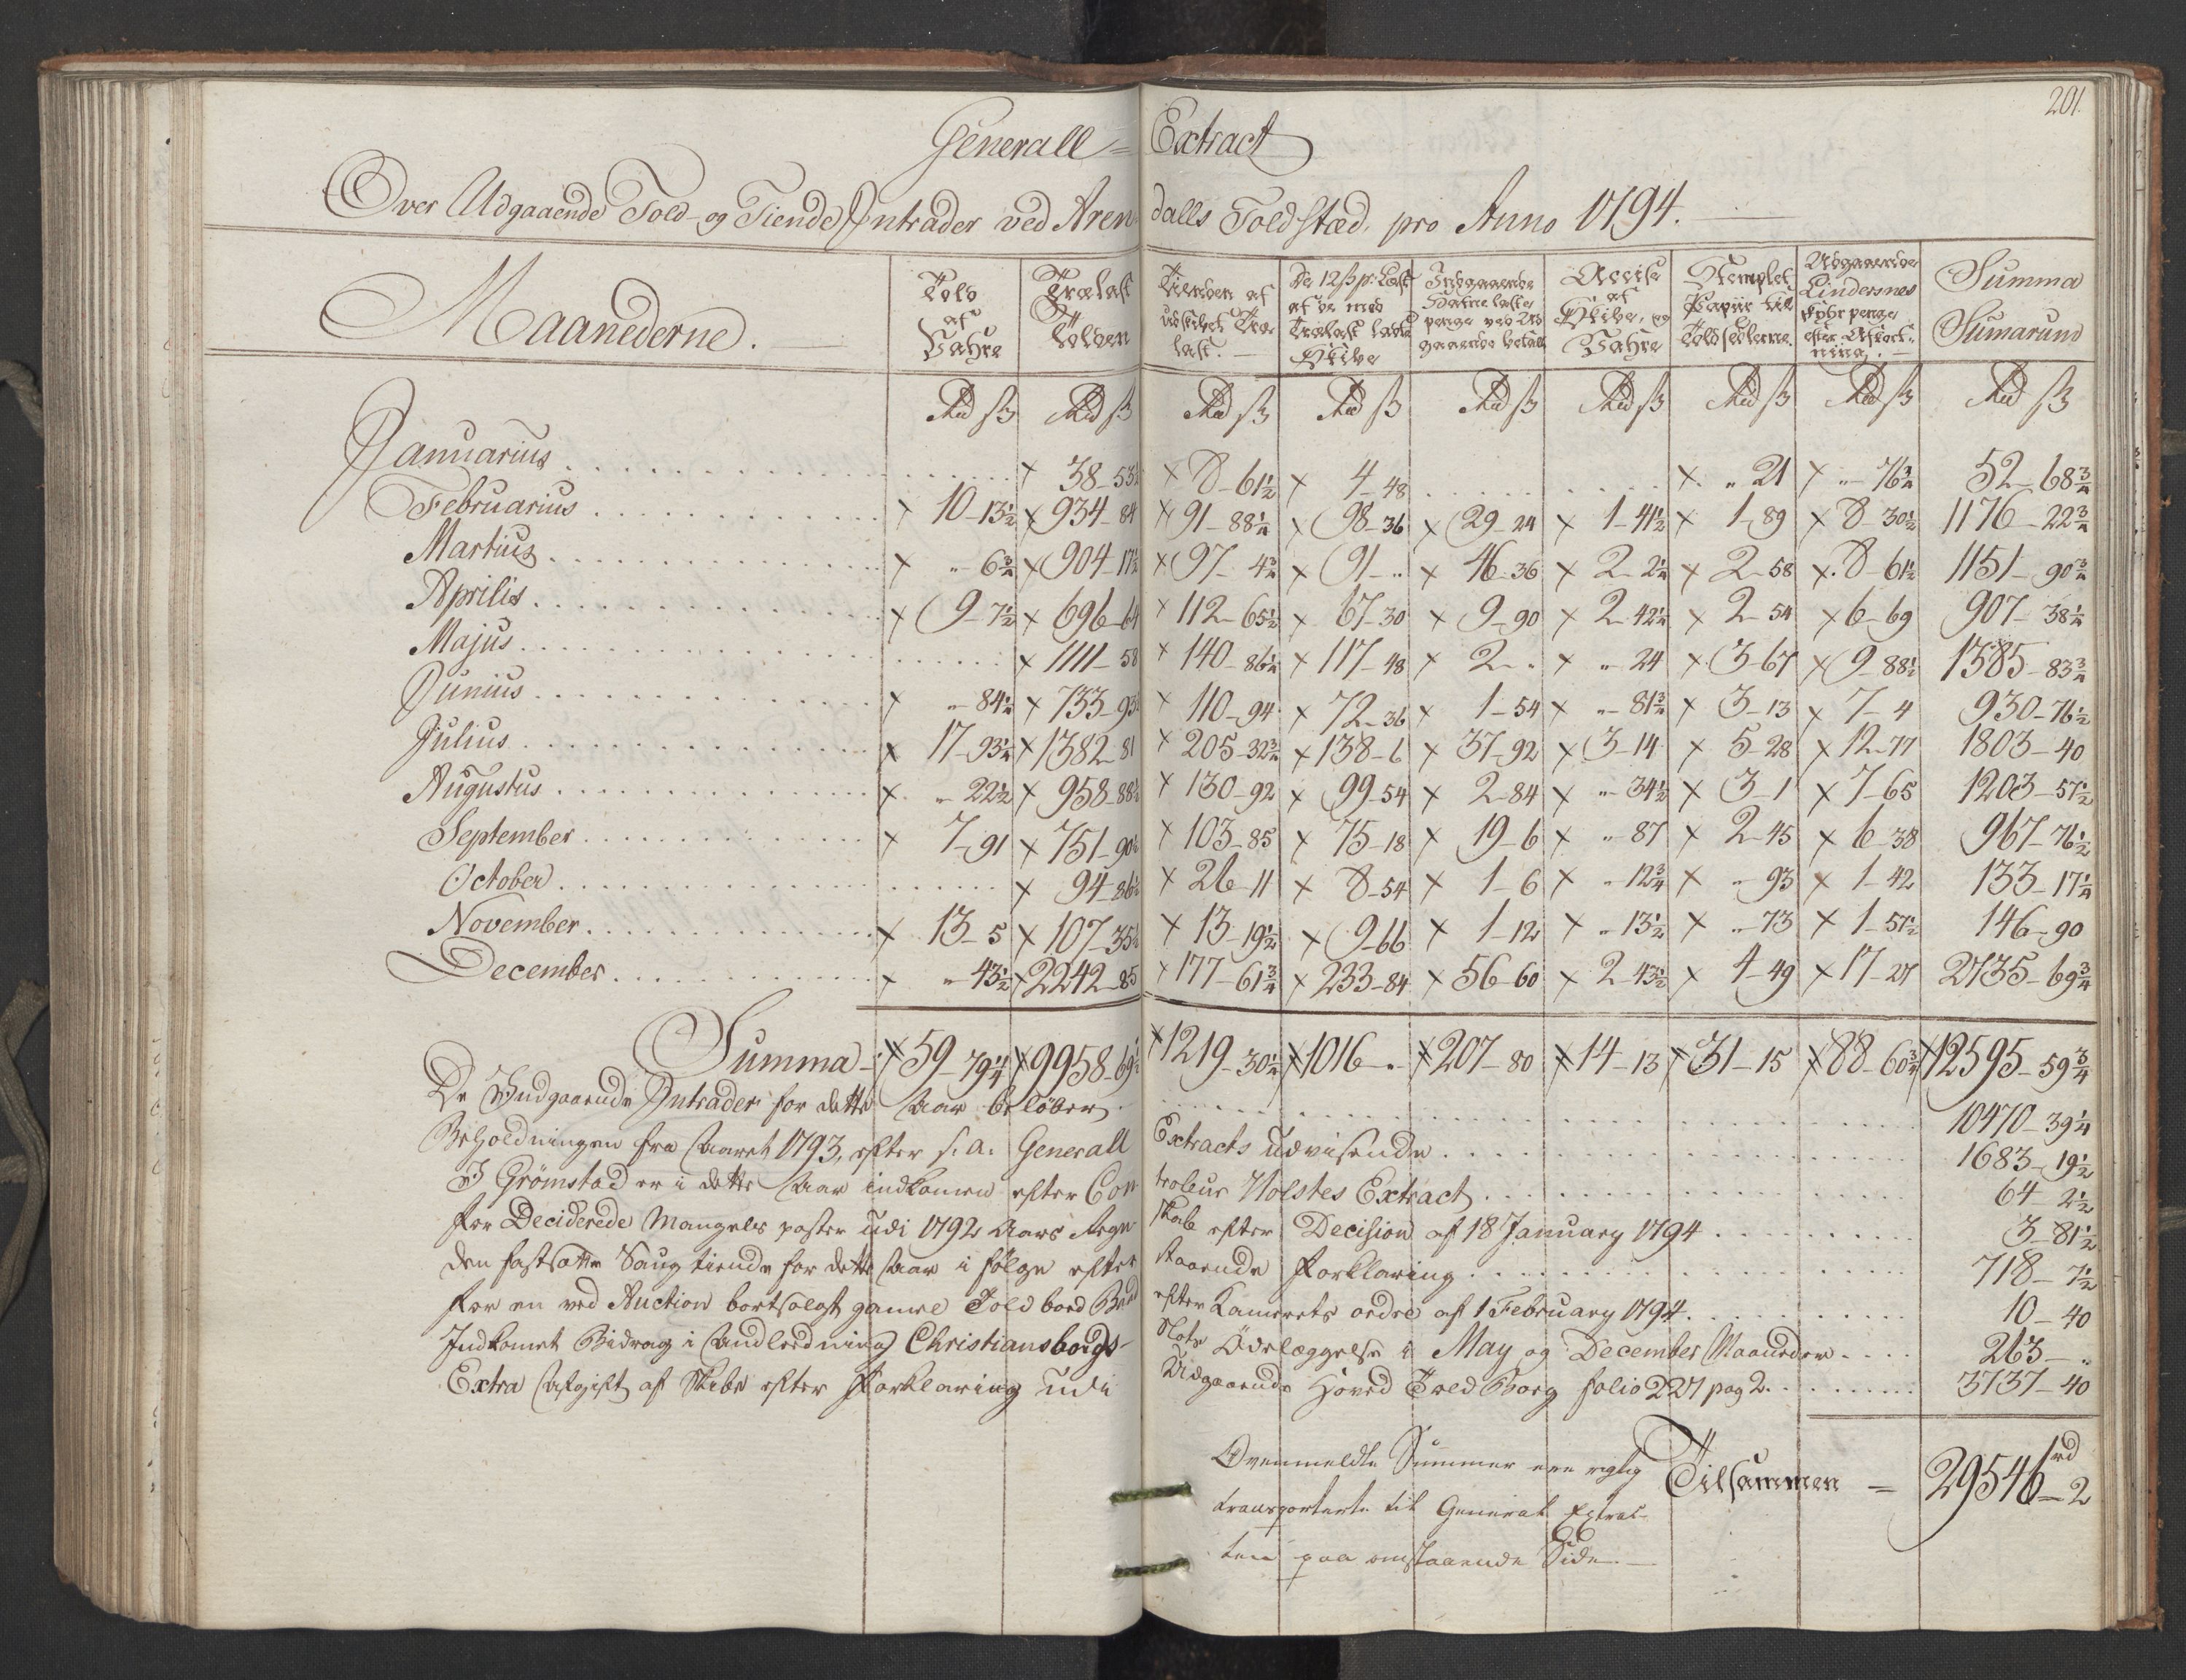 201.
Generall = Extract
Over Udgaaende Told- og Tiende Intrader ved Aren- dalls Toldstæd, pro Anno 1794.
Maanederne. Told af Vahre | Trælast Tolden | Tienden af udskibet Træ last. | De 12 ß pr Læst af de med Trælast ladte Skibe | Indgaaende Hafne laste penge ved Ud gaaende betalt | Accise af Skibe, og Vahre | Stemplet Papiir till Toldsedlerne | Udgaaende Lindersnes Fyhr penge efter Afkort- ning. | Summa Sumarum
Rd ß | Rd ß | Rd ß | Rd ß | Rd ß | Rd ß | Rd ß | Rd ß | Rd ß
Januarius . . . . × 38-53½ × 8-61½ × 4-48 . . . . × „ 21 × „-76¾ 52-68¾
Februarius . . . . × 10-13½ × 934-84 × 91-88¼ × 98-36 × 29-24 × 1-41½ × 1-89 × 8-30½ 1176-22¾
Martius . . . . × „-6¾ × 904-17½ × 97-4¾ × 91-„ × 46-36 × 2-2¼ × 2-58 × 8-61½ 1151-90¾
Aprilis . . . . × 9-7½ × 696-64 × 112-65½ × 67-30 × 9-90 × 2-42¼ × 2-54 × 6-69 907-38¼
Majus . . . . × 1111-58 × 140-86¼ × 117-48 × 2-„ × „-24 × 3-67 × 9-88½ 1385-83¾
Junius . . . . × „-84¼ × 733-93½ × 110-94 × 72-36 × 1-54 × „-81¾ × 3-13 × 7-4 930-76½
Julius . . . . × 17-93¼ × 1382-81 × 205-32¾ × 138-6 × 37-92 × 3-14 × 5-28 × 12-77 1803-40
Augustus . . . . × „-22½ × 958-88½ × 130-92 × 99-54 × 2-84 × „-34½ × 3-1 × 7-65 1203-57½
September . . . . × 7-91 × 751-90½ × 103-85 × 75-18 × 19-6 × „-87 × 2-45 × 6-38 967-76½
October . . . . × 94-86½ × 26-11 × 8-54 × 1-6 × „-12¾ × „-93 × 1-42 133-17¼
November . . . . × 13-5 × 107-35½ × 13-19½ × 9-66 × 1-12 × „-13½ × „-73 × 1-57½ 146-90
December . . . . × „-43½ × 2242-85 × 177-61¾ × 233-84 × 56-60 × 2-43½ × 4-49 × 17-27 2735-69¾
Summa × 59-79¼ × 9958-69½ × 1219-30¼ × 1016-„ × 207-80 × 14-13 × 31-15 × 88-60¾ × 12595-59¾
De Indgaaende Intrader for dette Aar beløber . . . . 10470-39¼
Beholdningen fra Aaret 1793, efter s. a. Generall Extracts udvisende . . . . 1683-19½
I Grømstad er i dette Aar indkomen efter Con trolleur Holstes Extract . . . . 64-2½
For Deciderede Mangels poster udi 1792 Aars Regn skab efter Decision af 18 January 1794 . . . . 3-81½
Den fastsatte Saug tiende for dette Aar i følge efter staaende Forklaring . . . . 718-7½
For en ved Auction bortsolgt gamel Told boed Baad efter Kammerets ordre af 1 February 1794 . . . . 10-40
Indkomet Bidrag i Andledning Christiansborgs- Slots Ödelæggelse i May og December Maaneder . . . . 263-„
Extra Afgift af Skibe efter Forklaring udi Udgaaende Hoved Told Bog folio 227 pag 2 . . . . 3737-40
Tilsammen = 29546 rd-2
Ovenmeldte Summer ere rigtig
transporterte til General Extrac-
ten paa omstaaende Side.